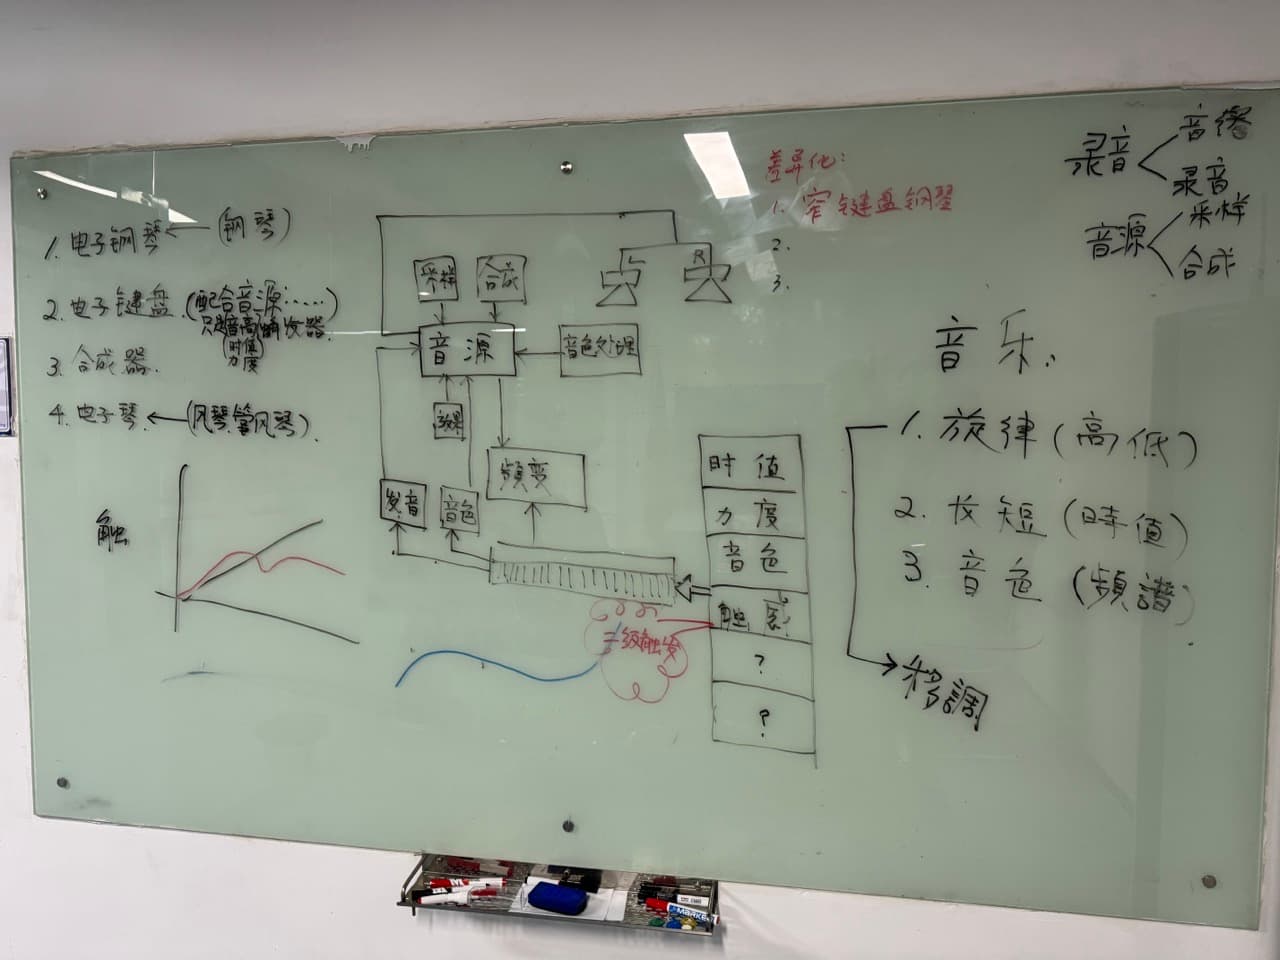 1. 电子钢琴 ← (钢琴)
2. 电子键盘 (配合音源……)
只是音高的收器
(时值)
力度
3. 合成器.
4. 电子琴. ← (风琴管风琴).
触
采样
合成
音源
音色处理
效果
频变
发音
音色
L
R
差异化:
1. 窄键盘钢琴
2.
3.
时值
力度
音色
触感
?
?
三级触发
录音
录音
音源
采样
合成
音乐.
1. 旋律 (高低)
2. 长短 (時值)
3. 音色 (頻譜)
移調